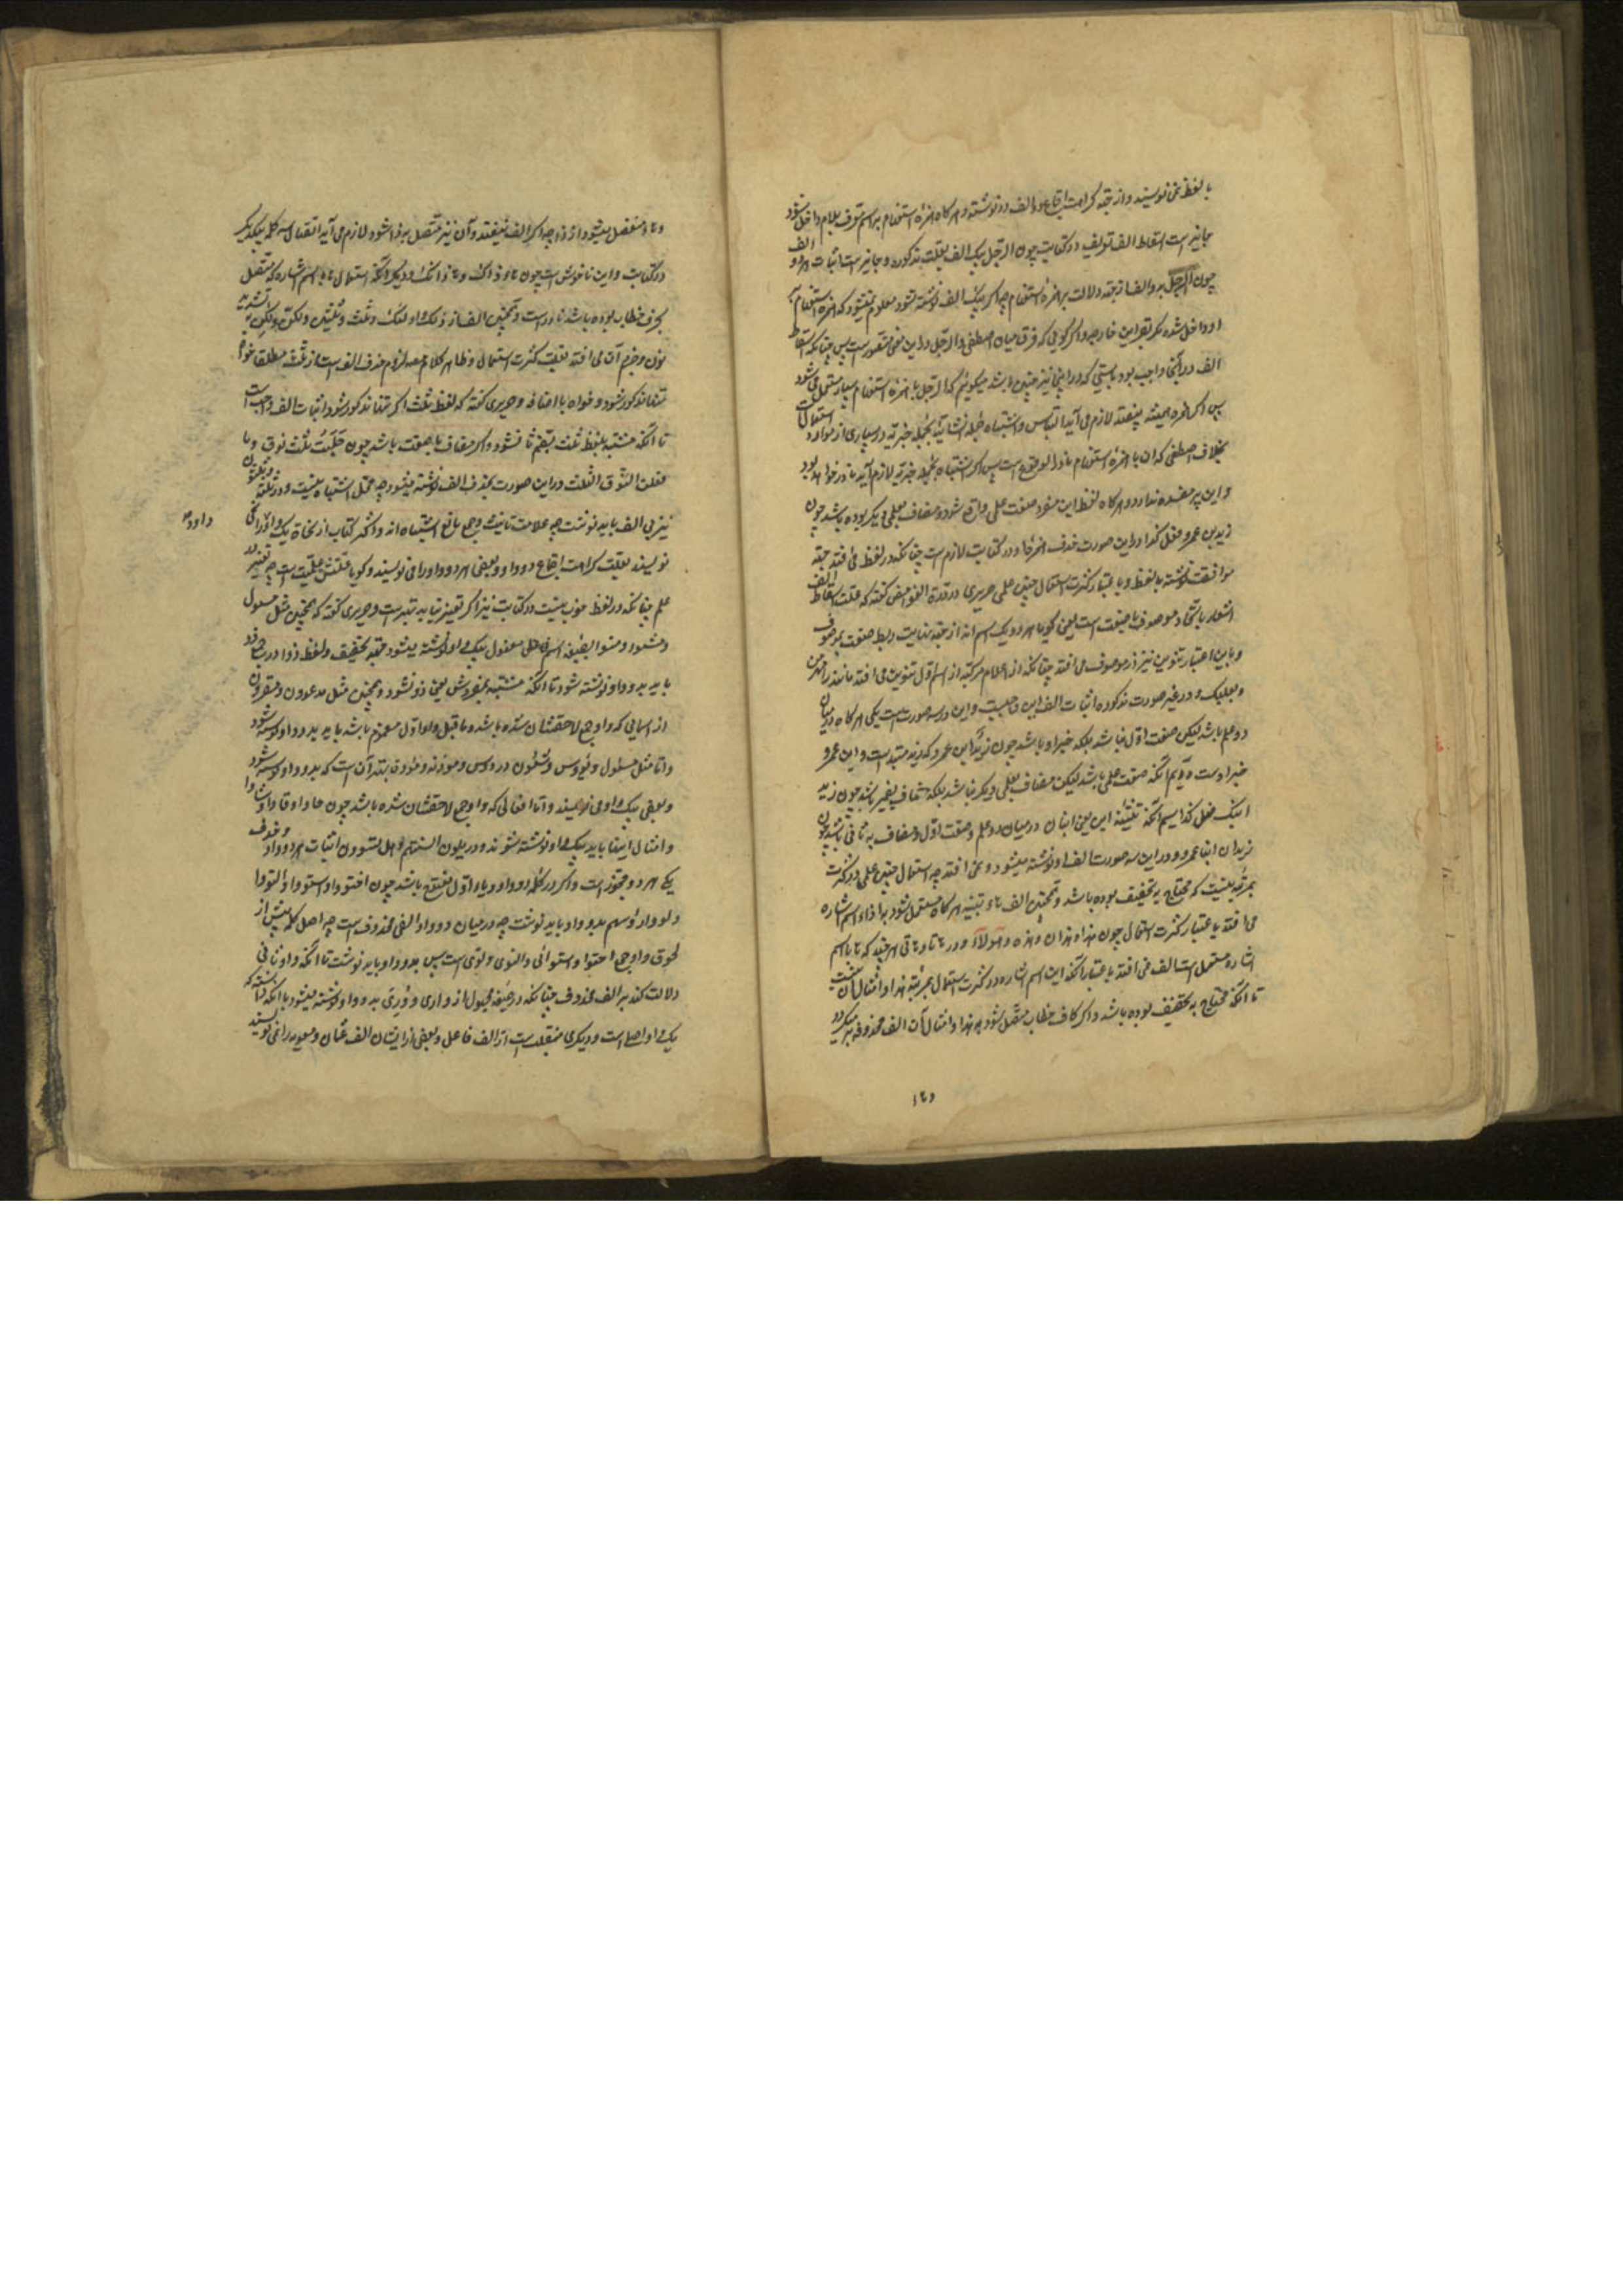 با لفظ نمی‌نویسند و از جهة کراهت اجتماع دو الف در نوشته و هر کاه همزه استفهام بر اسم معرف بلام داخل شود
جایز است اسقاط الف تعریف در کتابت چون الرجل بیک الف بعلت مذکوره و جایز است اثبات هر دو الف
چون االرجل بدو الف از جهة دلالت بر همزه استفهام چه اکر بیک الف نوشته شود معلوم نمیشود که همزه استفهام بر
او داخل شده مکر بقراین خارجه و اکر کویی که فرق میان اصطفی و الرجل در این معنی متصور نیست پس چنانکه اسقاط
الف در آنجا واجب بود بایستی که در اینجا نیز چنین باشد میکوئیم که الرجل با همزه استفهام بسیار مستعمل می‌شود
پس اکر همزه همیشه بیفتد لازم می‌آید التباس و اشتباه جمله انشائیه بجمله خبریه در بسیاری از موارد استعمالات
بخلاف اصطفی که آن با همزه استفهام نادر الوقوع است پس اکر اشتباه بجمله خبریه لازم آید نادر خواهد بود
و این پر مفسده ندارد و هر کاه لفظ ابن مفرد صفت علمی واقع شود و مضاف بعلمی دیکر بوده باشد چون
زید بن عمرو فعل کذا در این صورت حذف همزه او در کتابت لازم است چنانکه در لفظ می افتد جهة
موافقت نوشته با لفظ و با عتبار کثرت استعمال چنین علمی حریری در درة الغواص کفته که علت اسقاط الف
اشعار باتحاد موصوف با صفت است یعنی کویا هر دو یک اسم اند از جهة نهایت ربط صفت بموصوف
و باین اعتبار تنوین نیز از موصوف می افتد چنانکه از اعلام مرکبه از اسم اول تنوین می افتد مانند رامهرمز
و بعلبک و در غیر صورت مذکوره اثبات الف ابن واجبست و این در سه صورت است یکی هر کاه در میان
دو علم باشد لیکن صفت اول نباشد بلکه خبر او باشد چون زیدٌ ابن عمرو که زید مبتدا است و ابن عمرو
خبر اوست دویم آنکه صفت علمی باشد لیکن مضاف بعلمی دیکر نباشد بلکه مضاف بغیر باشد چون زید
ابنک فعل کذا سیم آنکه تثنیه ابن یعنی ابنان در میان دو علم و صفت اول و مضاف به ثانی باشد چون
زیدان ابنا عمرو و در این سه صورت الف او نوشته میشود و نمی افتد چه استعمال چنین علمی در کثرت
بمرتبه نیست که محتاج به تخفیف بوده باشد و همچنین الف هاء تنبیه هر کاه مستعمل شود با ذا اسم اشاره
می افتد با عتبار کثرت استعمال چون هذا و هذان و هذه و هؤلاء و در هاتا و هاتی هر چند که ها با اسم
اشاره مستعمل است الف نمی افتد با عتبار آنکه این اسم اشاره در کثرت استعمال بمرتبه هذا و امثال آن نیست
تا آنکه محتاج به تخفیف بوده باشد و اکر کاف خطاب متصل شود به هذا و امثال آن الف محذوفه بر میکردد
۱۲۵
و ها منفصل میشود از ذا چه اکر الف بیفتد و آن نیز متصل به ذا شود لازم می آید اتصال سه کلمه بیکدیکر
در کتابت و این ناخوش است چون هاء ذاک و ها ذانک و دیکر آنکه استعمال ها با اسم اشاره که متصل
بحرف خطاب بوده باشد نادر است و همچنین الف از ذلک و اولئک و ثلث و ثلثین و لکن و لکنّ بتشدید
نون و جزم آن می افتد بعلت کثرت استعمال و ظاهر کلام مصه لزوم حذف الف است از ثلث مطلقا خواه
تنها مذکور شود و خواه با اضافه و حریری کفته که لفظ ثلث اکر تنها مذکور شود اثبات الف واجب است
تا آنکه مشتبه بلفظ ثلث بضم ثا نشود و اکر مضاف یا صفت باشد چون حَلَبْتُ ثلث نوق و ما
فعلت النوق الثلث در این صورت بحذف الف نوشته میشود چه محل اشتباه نیست و در ثلثة و ثلثون
نیز بی الف باید نوشت چه علامت تانیث و جمع مانع اشتباه اند و اکثر کتاب از نحاة یک واو را از
داود
نویسند بعلت کراهت اجتماع دو واو و بعضی هر دو واو را می نویسند و کویا علتش علمیت است چه تغییر در
علم چنانکه در لفظ خوب نیست در کتابت نیز اکر تغییر نیابد بهتر است و حریری کفته که همچنین مثل مسئول
و مشئود و مشئوا بصیغه اسم مفعول بیک واو نوشته میشود جهة تخفیف و لفظ ذوا در
باید بدو واو نوشته شود تا آنکه مشتبه بمفردش یعنی ذو نشود و همچنین مثل مدعوون و مغزوون
از اسمایی که واو جمع لاحقشان شده باشد و ماقبل واو اول مضموم باشد باید بدو واو نوشته شود
و اما مثل مسئول و یؤوس و شئون در رؤس و موذنه و موؤدة بهتر آن است که بدو واو نوشته شود
و بعضی بیک واو می نویسند و اما افعالی که واو جمع لاحقشان شده باشد چون جاوا و قاوا و شاوا
و امثال اینها باید بیک واو نوشته شوند و در یلوون السنتهم و هل یستوون اثبات هر دو واو و حذف
یکی هر دو مجوز است و اکر در کلمه دو واو و یا واو اول مفتوح باشد چون احتووا و استووا و التووا
و لووا رؤسهم بدو واو باید نوشت چه در میان دو واو الفی محذوف است چه اصل کلمه پیش از
لحوق واو جمع احتوا و استوای و التوی و لوی است پس بدو واو باید نوشت تا آنکه واو ثانی
دلالت کند بر الف محذوف چنانکه در صیغه مجهول از واری وُوْرِیَ بدو واو نوشته میشود با آنکه
یک واو اصلی است و دیکری منقلب است از الف فاعل و بعضی از ایشان الف عثمان و معویه را نمی نویسند